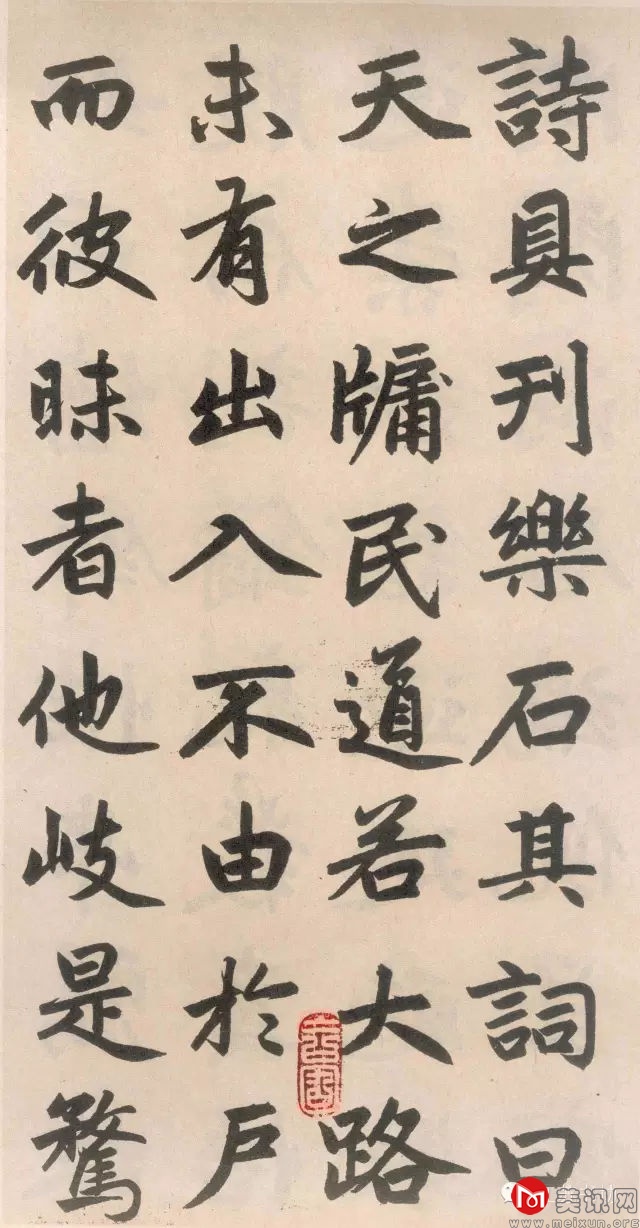 詩具刊樂石其詞曰
天之牖民道若大路
未有出入不由於戶
而彼昧者他岐是騖
美讯网
www.meixun.org